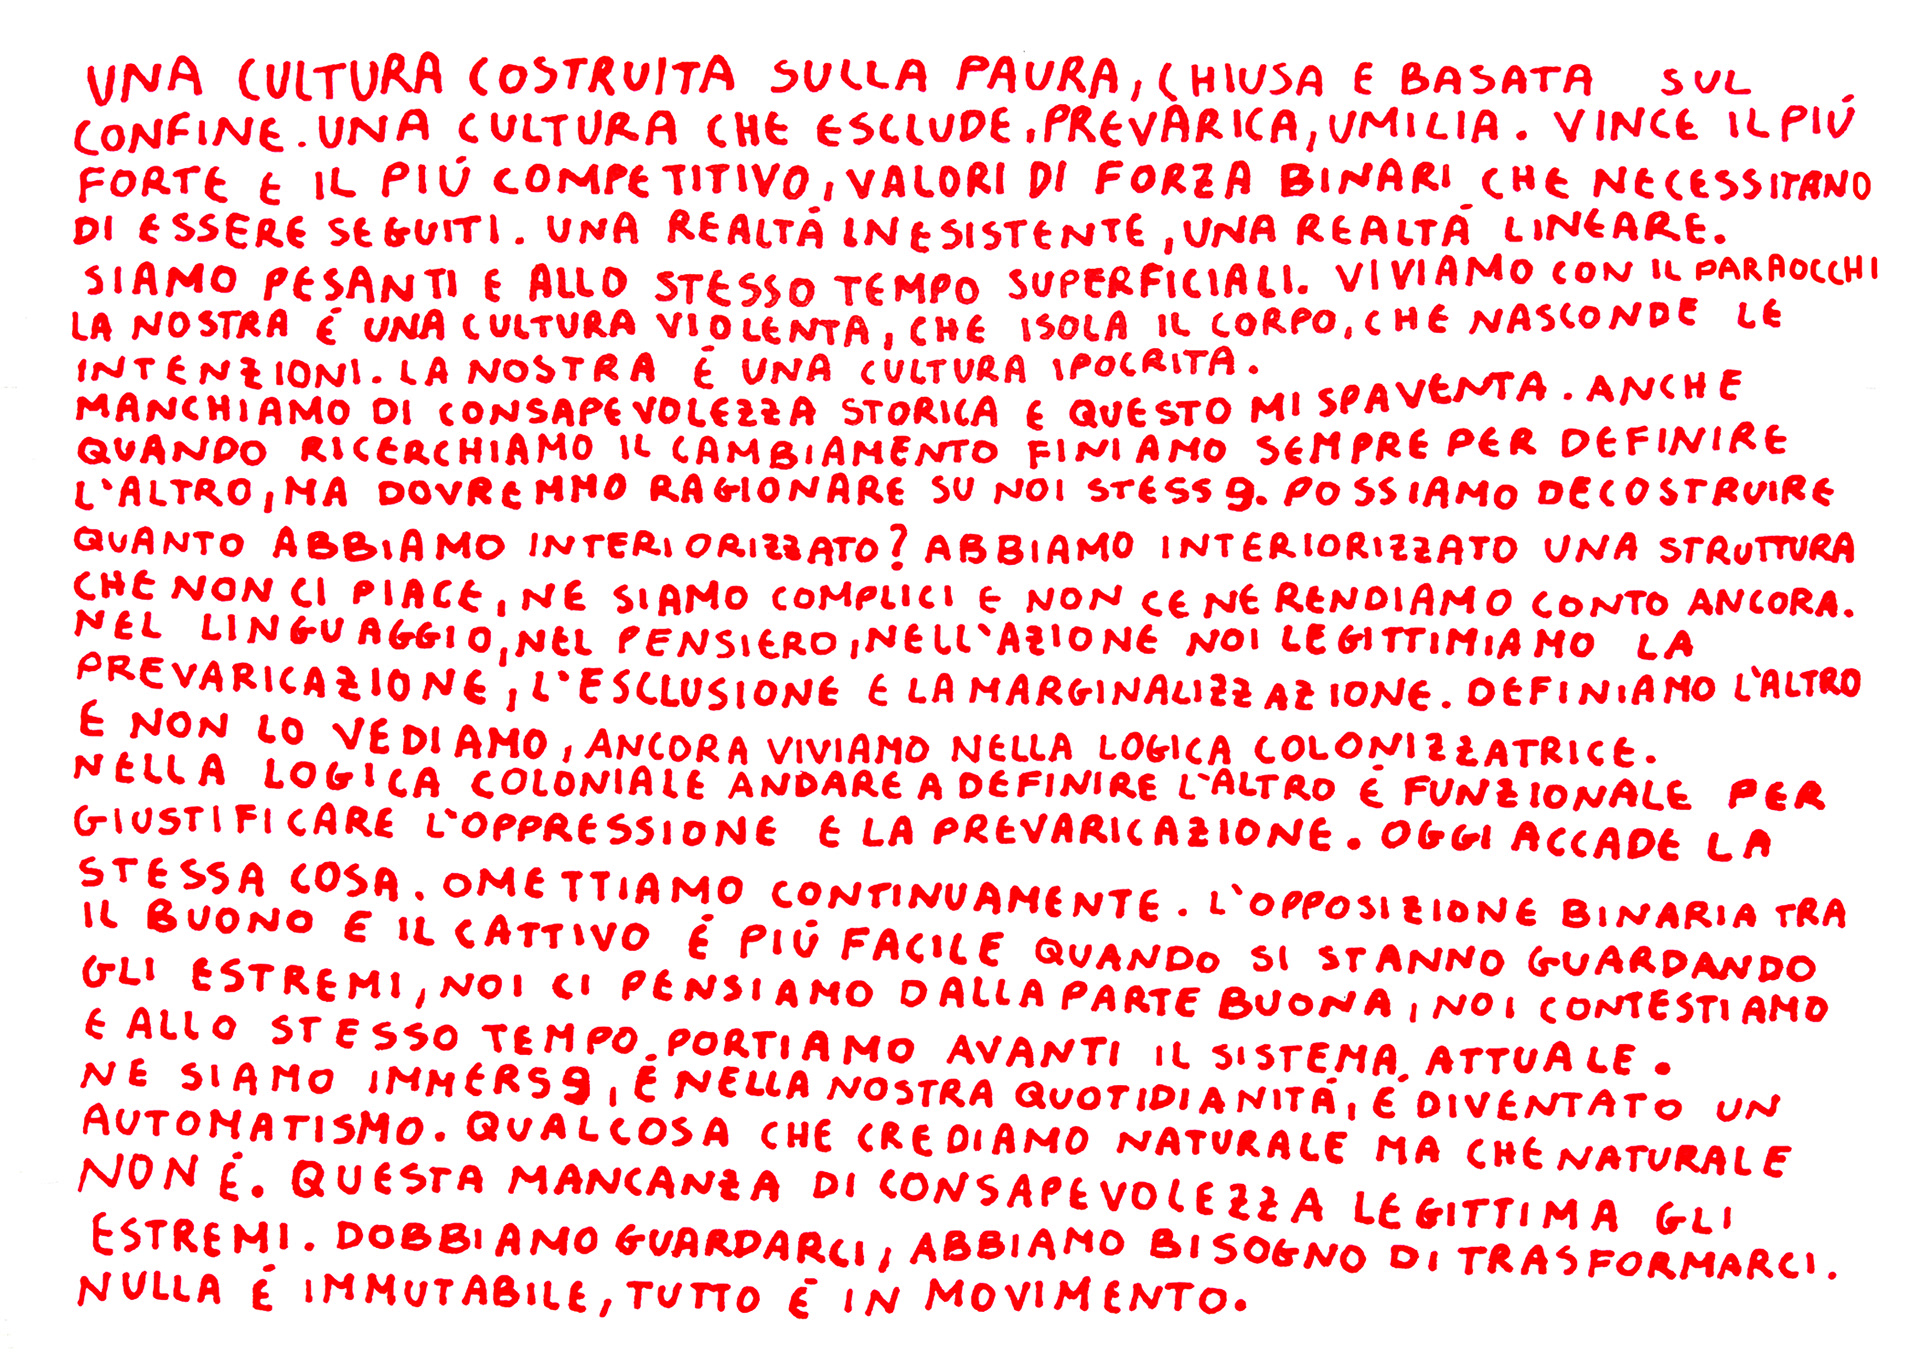 UNA CULTURA COSTRUITA SULLA PAURA, CHIUSA E BASATA SUL
CONFINE. UNA CULTURA CHE ESCLUDE, PREVARICA, UMILIA. VINCE IL PIÚ
FORTE E IL PIÚ COMPETITIVO, VALORI DI FORZA BINARI CHE NECESSITANO
DI ESSERE SEGUITI. UNA REALTÁ INESISTENTE, UNA REALTÁ LINEARE.
SIAMO PESANTI E ALLO STESSO TEMPO SUPERFICIALI. VIVIAMO CON IL PARAOCCHI
LA NOSTRA É UNA CULTURA VIOLENTA, CHE ISOLA IL CORPO, CHE NASCONDE LE
INTENZIONI. LA NOSTRA É UNA CULTURA IPOCRITA.
MANCHIAMO DI CONSAPEVOLEZZA STORICA E QUESTO MI SPAVENTA. ANCHE
QUANDO RICERCHIAMO IL CAMBIAMENTO FINIAMO SEMPRE PER DEFINIRE
L'ALTRO, MA DOVREMMO RAGIONARE SU NOI STESSƏ. POSSIAMO DECOSTRUIRE
QUANTO ABBIAMO INTERIORIZZATO? ABBIAMO INTERIORIZZATO UNA STRUTTURA
CHE NON CI PIACE, NE SIAMO COMPLICI E NON CE NE RENDIAMO CONTO ANCORA.
NEL LINGUAGGIO, NEL PENSIERO, NELL'AZIONE NOI LEGITTIMIAMO LA
PREVARICAZIONE, L'ESCLUSIONE E LA MARGINALIZZAZIONE. DEFINIAMO L'ALTRO
E NON LO VEDIAMO, ANCORA VIVIAMO NELLA LOGICA COLONIZZATRICE.
NELLA LOGICA COLONIALE ANDARE A DEFINIRE L'ALTRO É FUNZIONALE PER
GIUSTIFICARE L'OPPRESSIONE E LA PREVARICAZIONE. OGGI ACCADE LA
STESSA COSA. OMETTIAMO CONTINUAMENTE. L'OPPOSIZIONE BINARIA TRA
IL BUONO E IL CATTIVO É PIÚ FACILE QUANDO SI STANNO GUARDANDO
GLI ESTREMI, NOI CI PENSIAMO DALLA PARTE BUONA, NOI CONTESTIAMO
E ALLO STESSO TEMPO PORTIAMO AVANTI IL SISTEMA ATTUALE.
NE SIAMO IMMERSƏ, É NELLA NOSTRA QUOTIDIANITÁ, É DIVENTATO UN
AUTOMATISMO. QUALCOSA CHE CREDIAMO NATURALE MA CHE NATURALE
NON É. QUESTA MANCANZA DI CONSAPEVOLEZZA LEGITTIMA GLI
ESTREMI. DOBBIAMO GUARDARCI, ABBIAMO BISOGNO DI TRASFORMARCI.
NULLA É IMMUTABILE, TUTTO É IN MOVIMENTO.